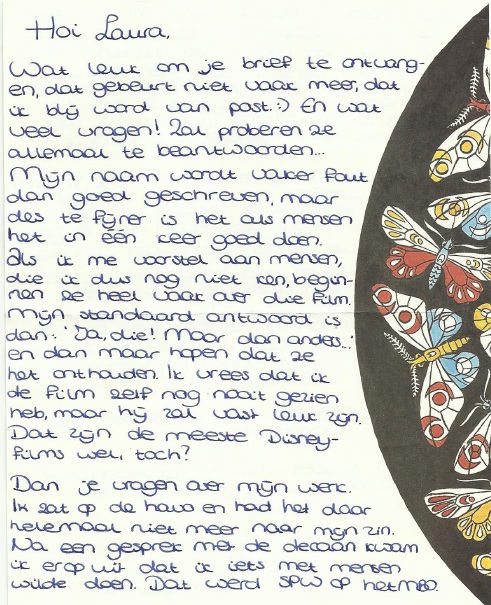 Hoi Laura,
Wat leuk om je brief te ontvang-
en, dat gebeurt niet vaak meer, dat
ik blij word van post. :) En wat
veel vragen! Zal proberen ze
allemaal te beantwoorden...
Mijn naam wordt vaker fout
dan goed geschreven, maar
des te fijner is het als mensen
het in één keer goed doen.
Als ik me voorstel aan mensen,
die ik dus nog niet ken, begin-
nen ze heel vaak over die film.
Mijn standaard antwoord is
dan: 'Ja, die! Maar dan anders...'
en dan maar hopen dat ze
het onthouden. Ik vrees dat ik
de film zelf nog nooit gezien
heb, maar hij zal vast leuk zijn.
Dat zijn de meeste Disney-
films wel, toch?
Dan je vragen over mijn werk.
Ik zat op de havo en had het daar
helemaal niet meer naar mijn zin.
Na een gesprek met de decaan kwam
ik erop uit dat ik iets met mensen
wilde doen. Dat werd SPW op het MBO.